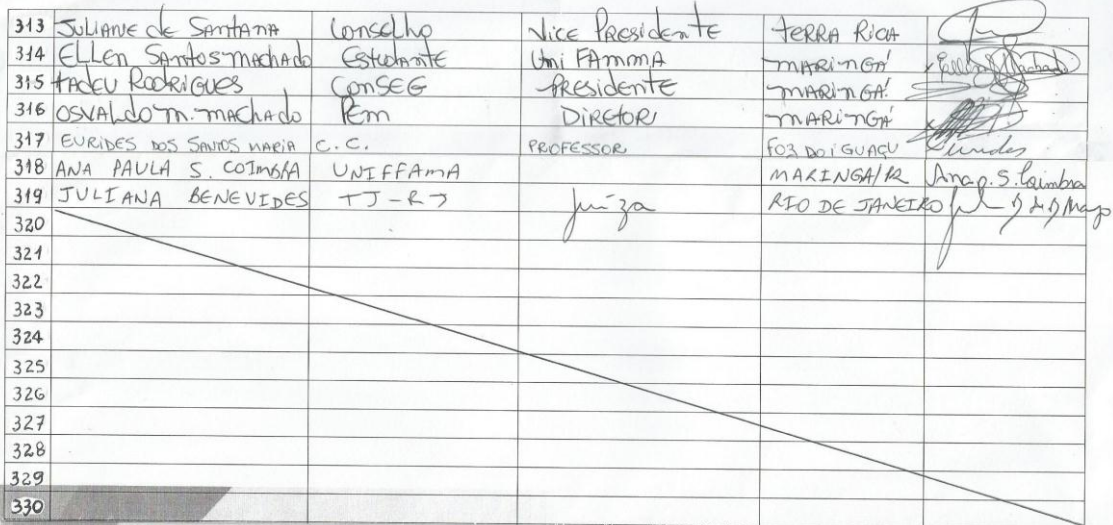 313 JULIANE de SANTANA Conselho Vice Presidente TERRA RICA
314 ELLEN Santos machado Estudante Uni FAmmA maringá
315 TADEU RODRIGUES ConSEG PResidente maringá.
316 OSVALDO m. machado Pem DIRETOR maringá
317 EURIDES DOS SANTOS MARIA C. C. PROFESSOR FOZ DO IGUAÇU Eurides
318 ANA PAULA S. COIMBRA UNIFFAMA MARINGA/PR Ana p. S. Coimbra
319 JULIANA BENEVIDES TJ-RJ juíza RIO DE JANEIRO
320
321
322
323
324
325
326
327
328
329
330